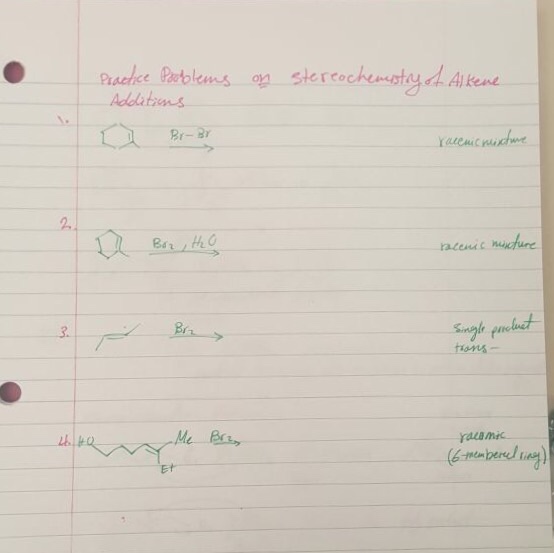 Practice Problems on stereochemistry of Alkene
Additions
1.
Br-Br
racemic mixture
2.
Br2, H2O
racemic mixture
3.
Br2
Single product
trans-
4. HO Me Br2
Et
racemic
(6-membered ring)